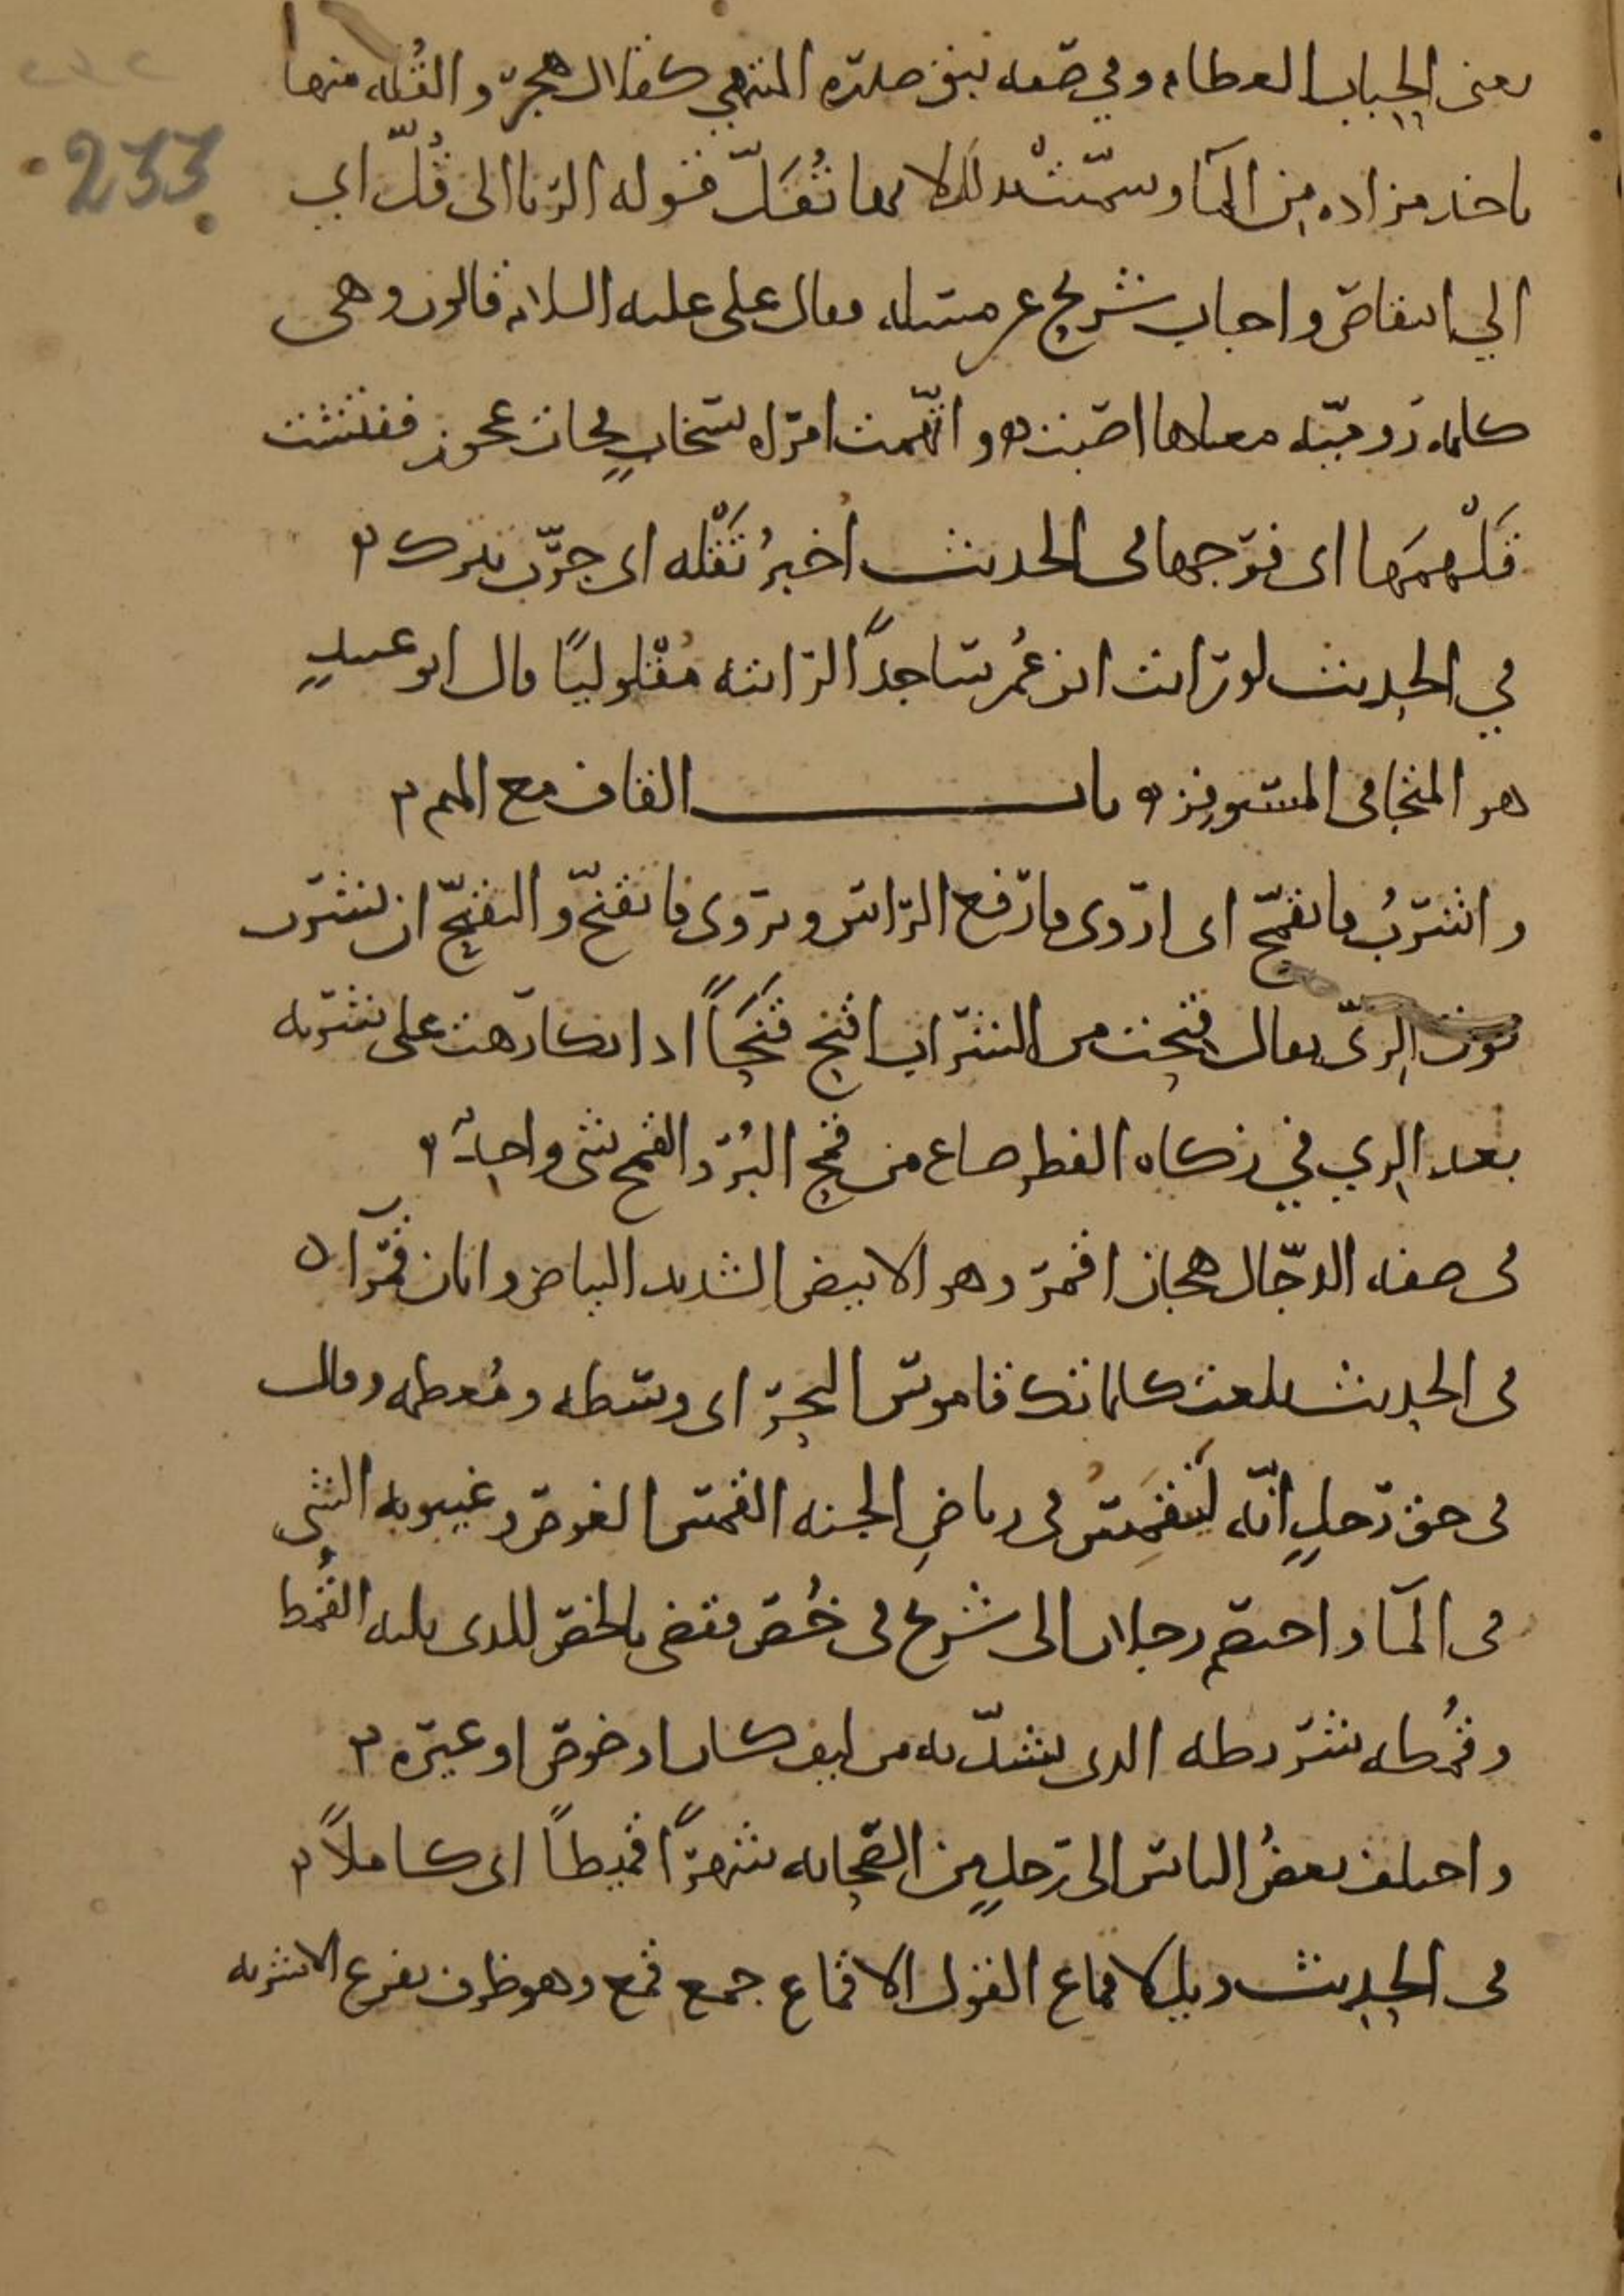 233
يعني الحباب العظام وفي صفه نبق سدرة المنتهى كقلال هجر والقُلّه منها
ياخذ مزاده من المآ وسمّيت بذلك لانها تُقَلّ قوله الربا الى قُلّ اي
الي انتقاص واجاب شريح عن مسئله فقال علي عليه السلام قالون وهي
كلمه روميّه معناها اصبت واتّهمت امراه بسخاب فجات عجوز ففتشت
قَلْهمَها اي فرجها في الحديث اخبُر تَقْله اي جرّب تترك
في الحديث لو رايت ابن عُمر ساجداً لرايته مُقْلوليًا قال ابو عبيدٍ
هو المتجافي المستوفز باب القاف مع الميم
واشربُ فاتقمّح اي اروى فارفع الراس ويروى فاتقنّح والتقنّح ان تشرب
فوق الريّ يقال قنحت من الشراب اقنح قَنَحاً اذا تكارهت على شربه
بعد الري في زكاه الفطر صاع من قمح البُرّ والقمح شي واحد
في صفه الدجّال هجان اقمر وهو الابيض الشديد البياض واتان قمرآ
في الحديث بلغت كلماتك قاموس البحر اي وسطه ومُعظمه وقال
في حق رجلٍ انّه لَينقمِسُ في رياض الجنه القمس الغوص وغيبوبه الشي
في المآ واحتصم رجلان الى شريح في خُص فقضى بالخص للذي يليه القُمُط
وقُمُطه شروطه الذي يشدّ به من ليف كان او خوص او غيره
واختلف بعضُ الناس الى رجلٍ من الصحابه شهراً قميطاً اي كاملاً
في الحديث ويل لاقماع القول الاقماع جمع قمع وهو ظرف يفرغ الاشربه